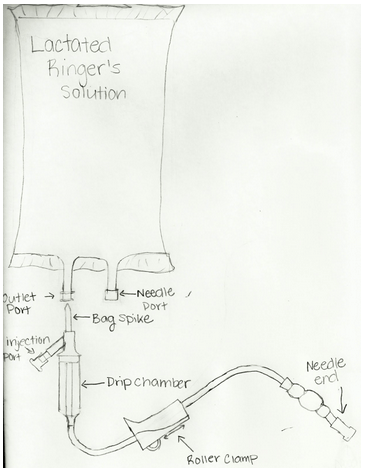 Lactated
Ringer's
Solution
Outlet
Port
Needle
Port
Bag spike
injection
port
Drip chamber
Needle
end
Roller clamp